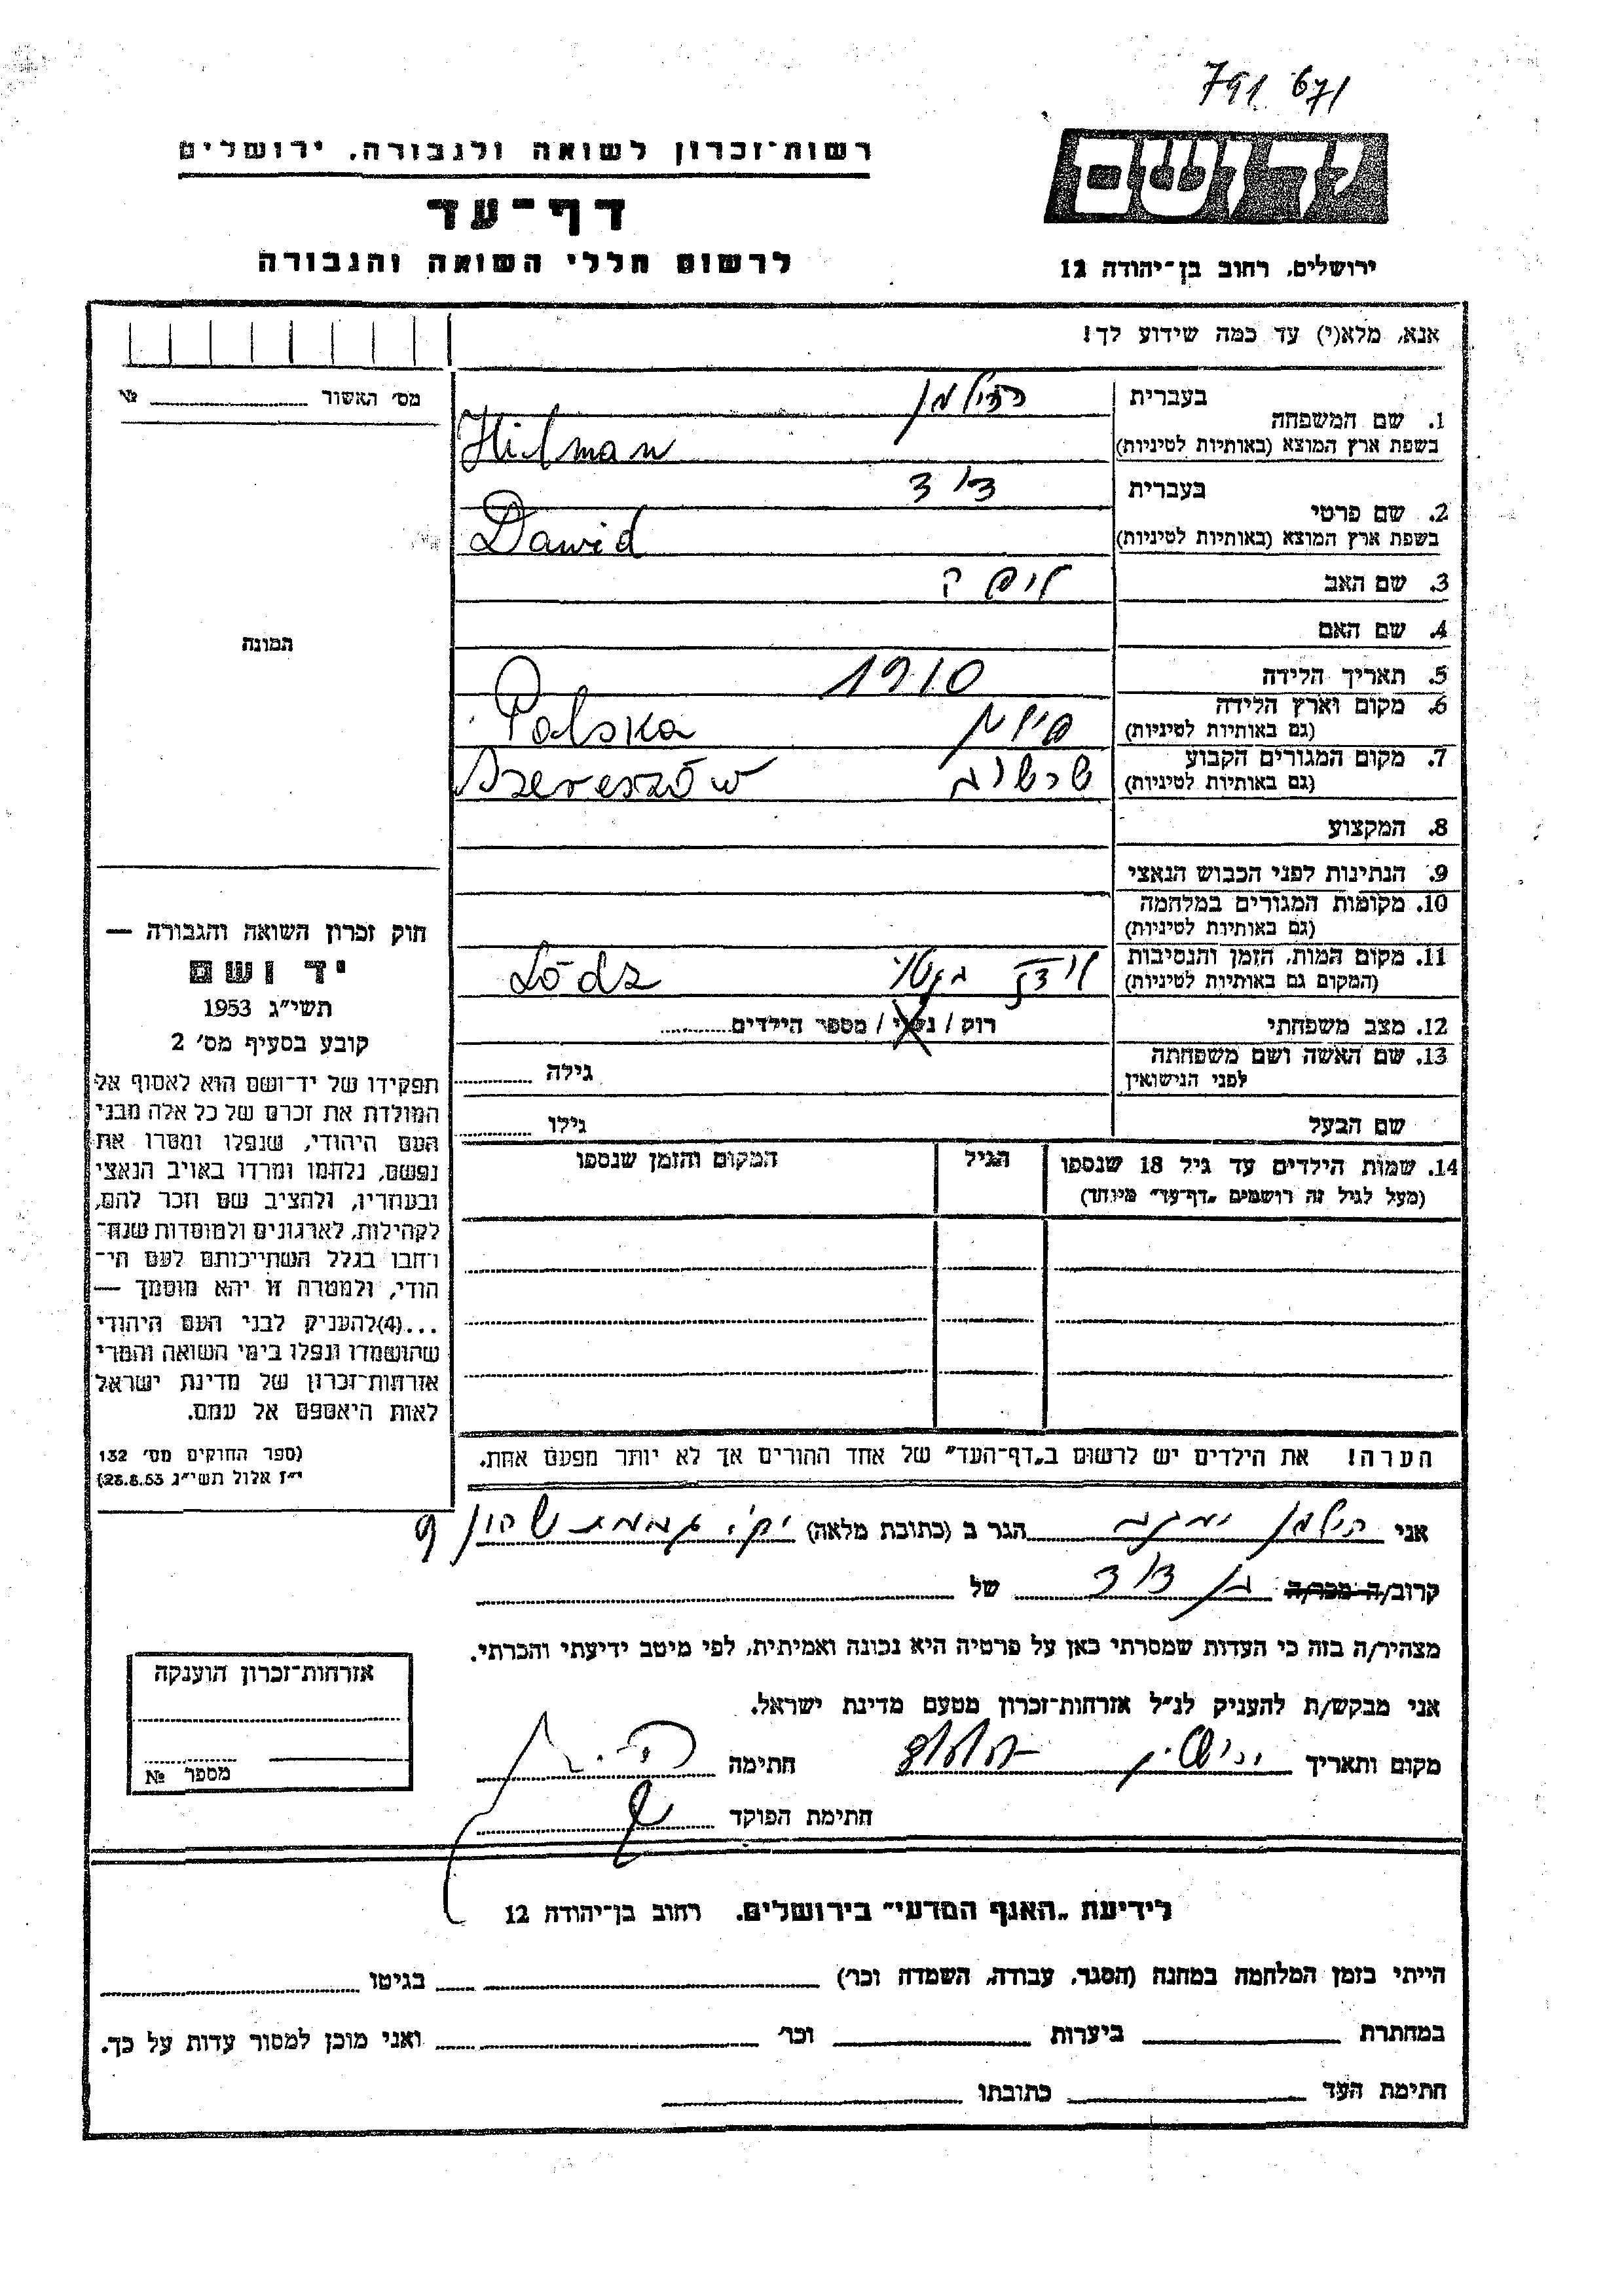 791 671
רשות־זכרון לשואה ולגבורה, ירושלים
ידושם
דף־עד
לרשום חללי השואה והגבורה
ירושלים, רחוב בן־יהודה 12
אנא, מלא(י) עד כמה שידוע לך!
מס׳ האשור № 
1. שם המשפחה
בעברית הילמן
בשפת ארץ המוצא (באותיות לטיניות) Hilman
2. שם פרטי
בעברית דוד
בשפת ארץ המוצא (באותיות לטיניות) Dawid
3. שם האב
4. שם האם
תמונה
5. תאריך הלידה 1910
6. מקום וארץ הלידה
(גם באותיות לטיניות) פולין Polska
7. מקום המגורים הקבוע
(גם באותיות לטיניות) שרשוב Szereszów
8. המקצוע
9. הנתינות לפני הכבוש הנאצי
10. מקומות המגורים במלחמה
(גם באותיות לטיניות)
11. מקום המות, הזמן והנסיבות
(המקום גם באותיות לטיניות) לודז בגטו Lódz
12. מצב משפחתי רוק / נשוי / מספר הילדים
13. שם האשה ושם משפחתה
לפני הנישואין גילה
שם הבעל גילו
14. שמות הילדים עד גיל 18 שנספו הגיל המקום והזמן שנספו
(מעל לגיל זה רושמים „דף־עד״ מיוחד)
חוק זכרון השואה והגבורה —
יד ושם
תשי״ג 1953
קובע בסעיף מס׳ 2
תפקידו של יד־ושם הוא לאסוף אל
המולדת את זכרם של כל אלה מבני
העם היהודי, שנפלו ומסרו את
נפשם, נלחמו ומרדו באויב הנאצי
ובעוזריו, ולהציב שם וזכר להם,
לקהילות, לארגונים ולמוסדות שנח־
רחבו בגלל השתייכותם לעם הי־
הודי, ולמטרה זו יהא מוסמך —
...(4)להעניק לבני העם היהודי
שהושמדו ונפלו בימי השואה והמרי
אזרחות־זכרון של מדינת ישראל
לאות היאספם אל עמם.
(ספר החוקים מס׳ 132
י״ז אלול תשי״ג 28.8.53)
הערה! את הילדים יש לרשום ב„דף־העד״ של אחד ההורים אך לא יותר מפעם אחת.
אני הילמן יעקב הגר ב (כתובת מלאה) 9
קרוב/ה מכר/ה בן דוד של
מצהיר/ה בזה כי העדות שמסרתי כאן על פרטיה היא נכונה ואמיתית, לפי מיטב ידיעתי והכרתי.
אני מבקש/ת להעניק לנ״ל אזרחות־זכרון מטעם מדינת ישראל.
מקום ותאריך חתימה
חתימת הפוקד
אזרחות־זכרון הוענקה
מספר №
לידיעת „האגף המדעי״ בירושלים. רחוב בן־יהודה 12
הייתי בזמן המלחמה במחנה (הסגר, עבודה, השמדה וכו׳) בגיטו
במחתרת ביערות וכו׳ ואני מוכן למסור עדות על כך.
חתימת העד כתובתו